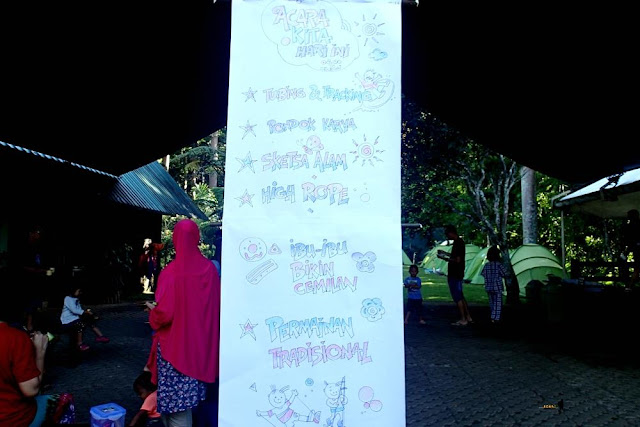 ACARA
KITA
HARI INI
TUBING & TRACKING
PONDOK KARYA
SKETSA ALAM
HIGH ROPE
IBU-IBU
BIKIN
CEMILAN
PERMAINAN
TRADISIONAL